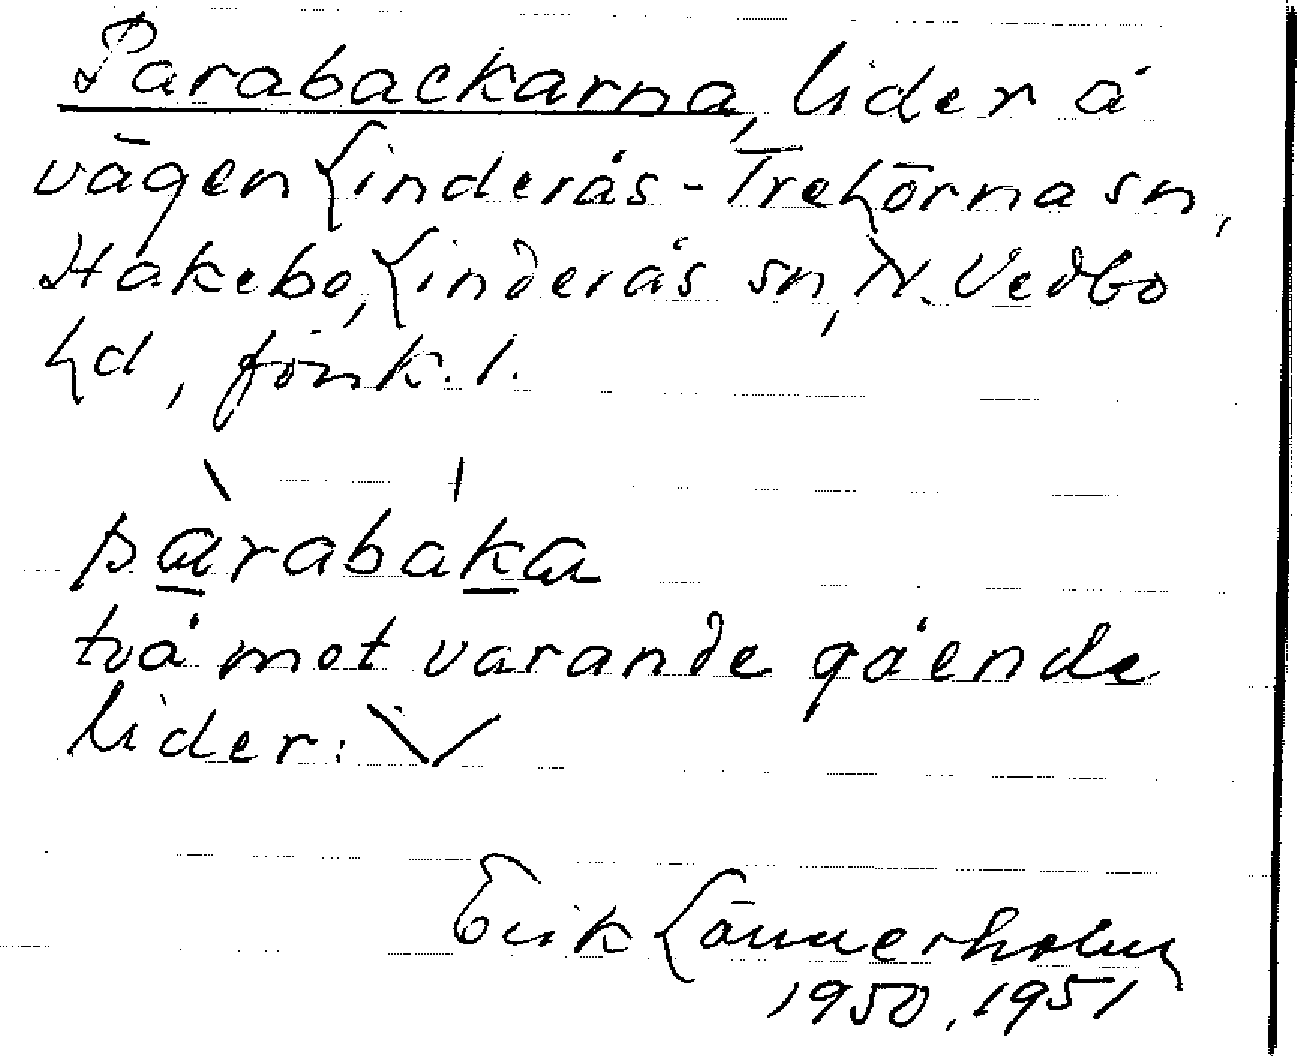 Parabackarna, lider å
vägen Linderås - Trehörna sn,
Håkebo, Linderås sn, N. Vedbo
hd, Jönk. l.
pàrabáka
två mot varande gående
lider:
Erik Lännerholm
1950, 1951